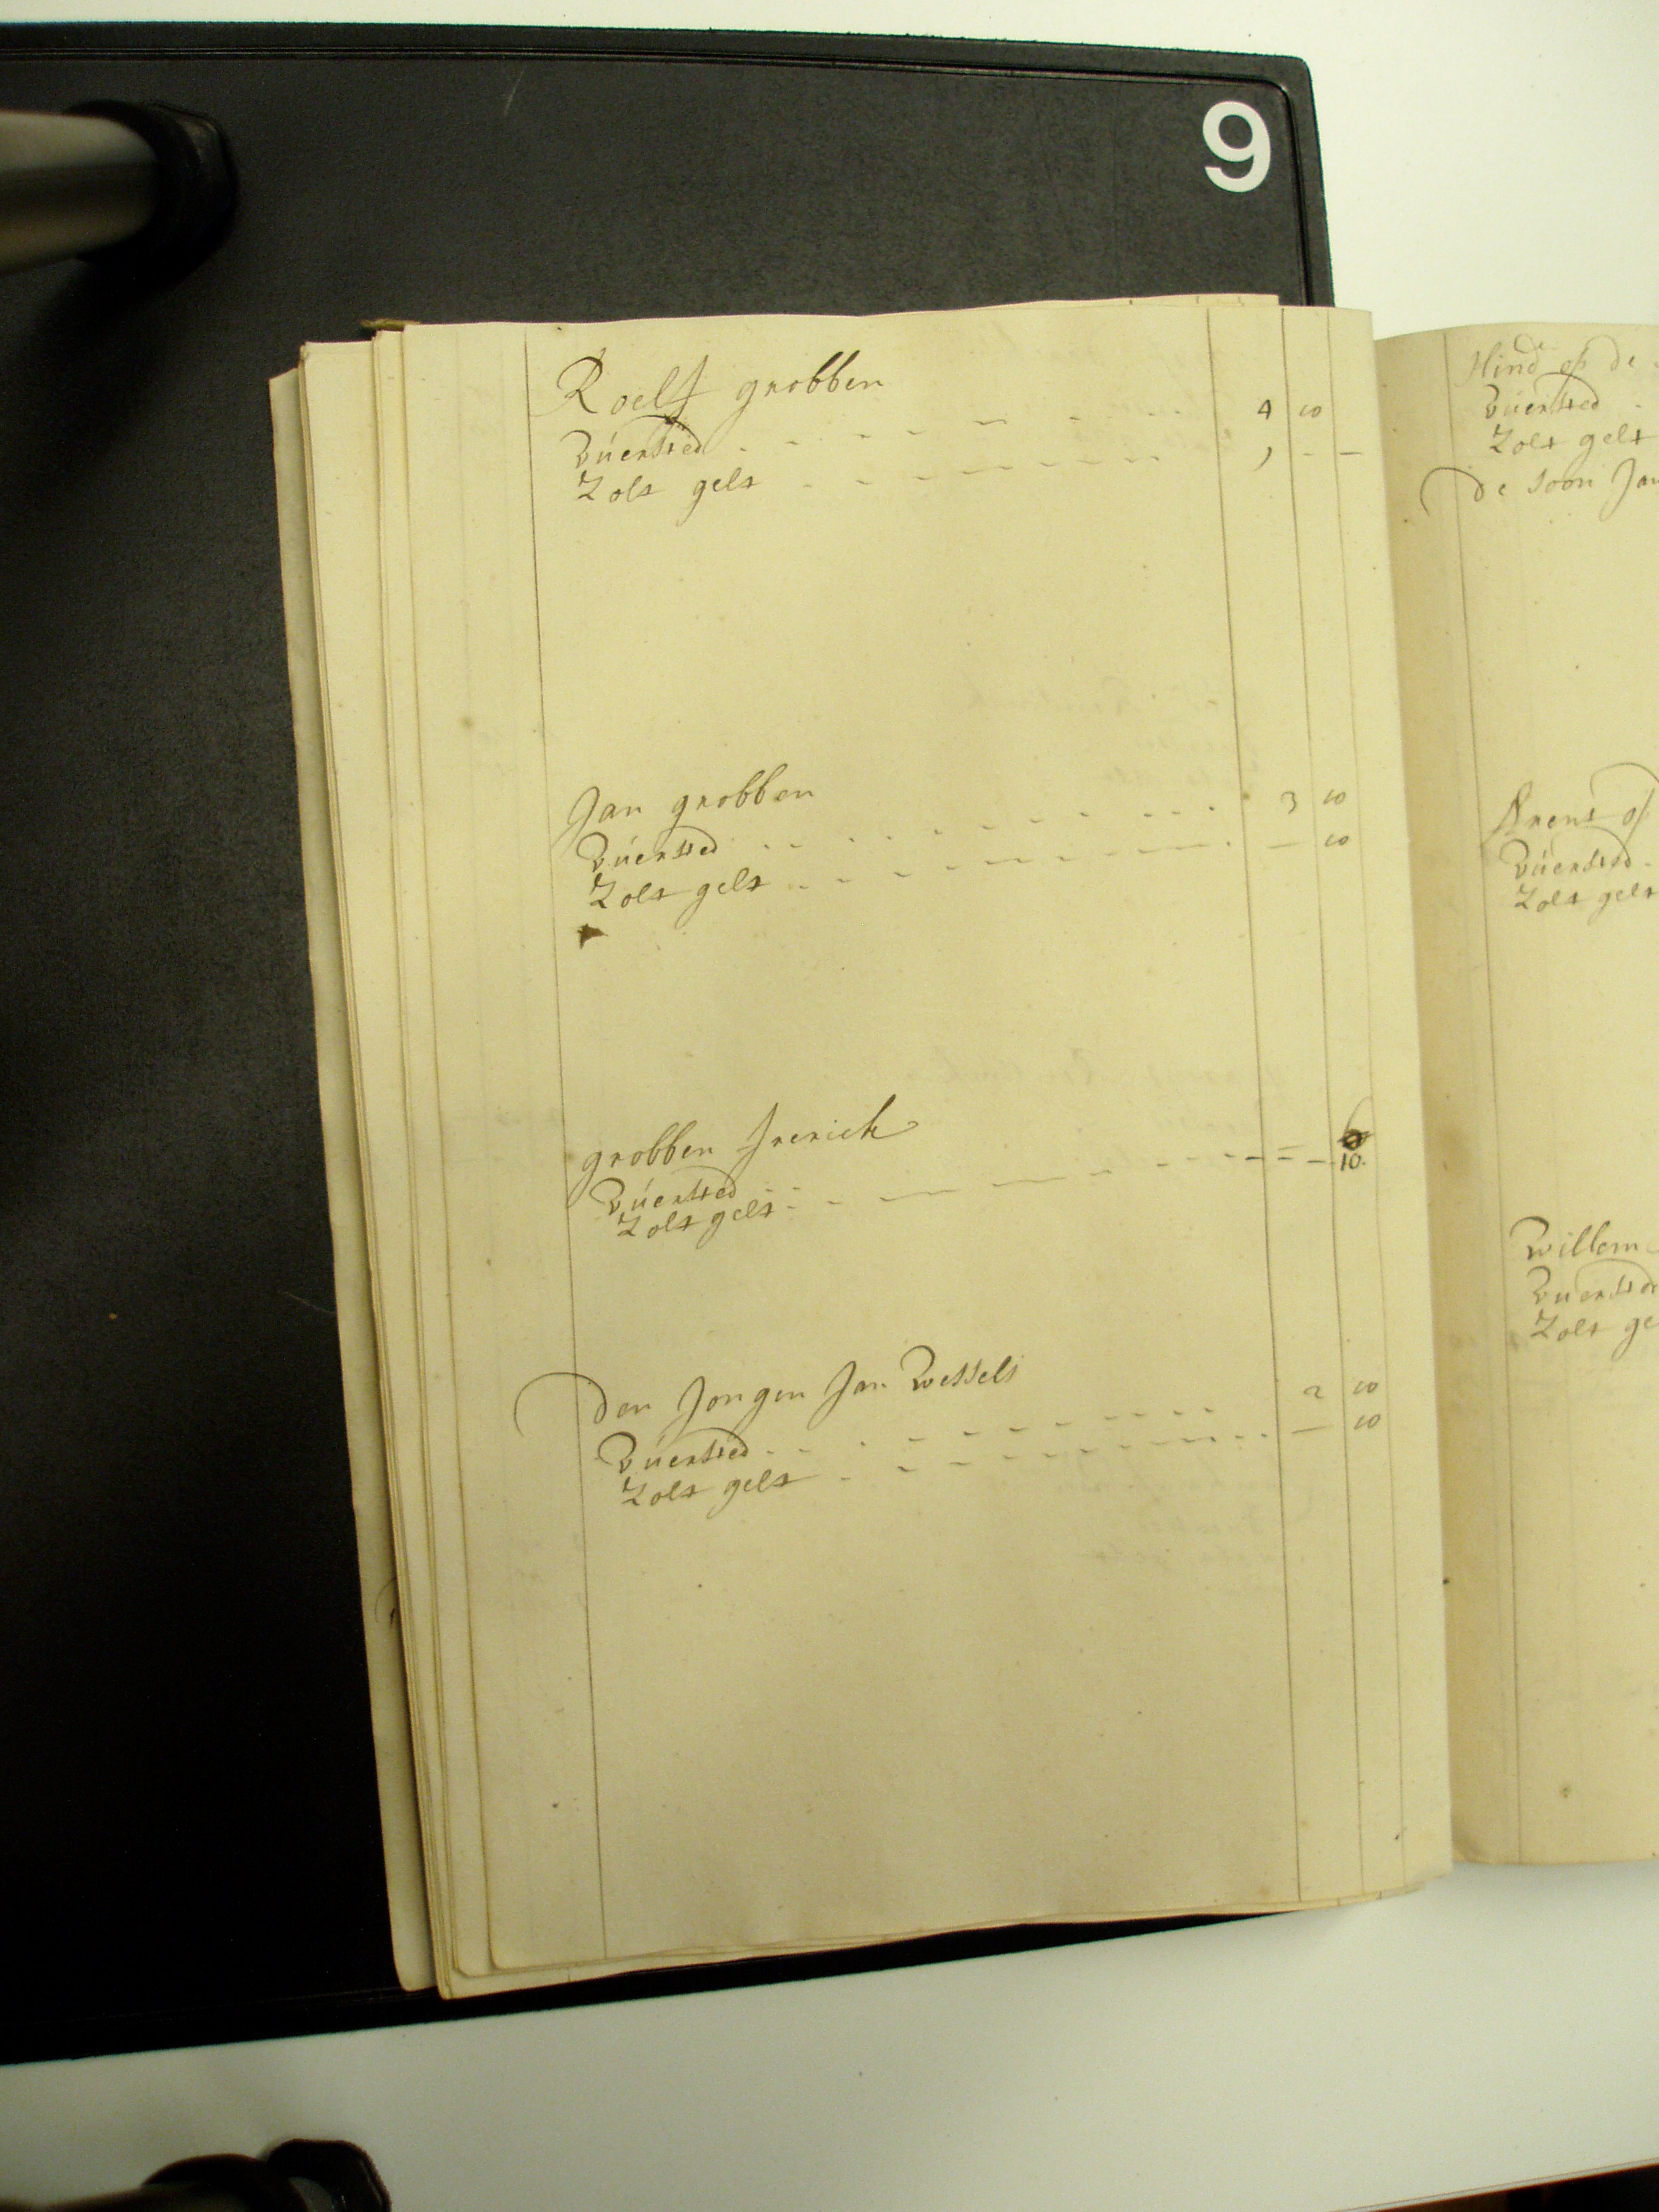 9
Roelf grobben
Vuersted - - - - - - - 4 10
Zolt gelt - - - - - - - 1 - -
Jan grobben
Vuersted - - - - - - - 3 10
Zolt gelt - - - - - - - - 10
grobben frerick
Vuersted - -
Zolt gelt - - - - - - - 10
Den Jongen Jan Wessels
Vuersted - - - - - - - 2 10
Zolt gelt - - - - - - - - 10
Hind op de
Vuersted -
Zolt gelt
de soon Jan
Arent op
Vuersted -
Zolt gelt
Willem
Vuersted
Zolt ge